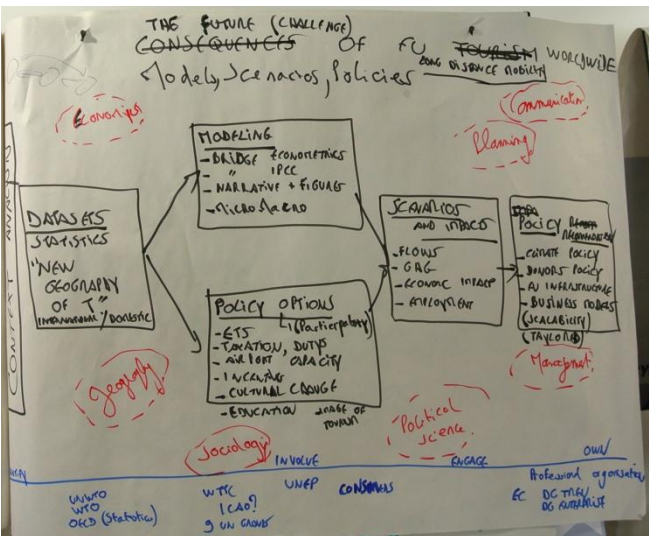 THE FUTURE (CHALLENGE)
CONSEQUENCES OF FU TOURISM WORLDWIDE
LONG DISTANCE MOBILITY
Models, Scenarios, Policies
Economics
Communication
Planning
CONTEXT ANALYSIS
DATASETS
STATISTICS
"NEW
GEOGRAPHY
OF T"
INTERNATIONAL / DOMESTIC
MODELING
- BRIDGE ECONOMETRICS
- " IPCC
- NARRATIVE + FIGURES
- MICRO MACRO
POLICY OPTIONS
- ETS (Participatory)
- TAXATION, DUTYS
- AIRPORT CAPACITY
- INCENTIVE
- CULTURAL CHANGE
- EDUCATION IMAGE OF
TOURISM
SCENARIOS
AND IMPACTS
- FLOWS
- GHG
- ECONOMIC IMPACT
- EMPLOYMENT
POLICY
- CLIMATE POLICY
- DONORS POLICY
- INFRASTRUCTURE
- BUSINESS MODELS
(SCALABILITY)
(TAYLORED)
Geography
Sociology
Political
science
Management
INVOLVE
ENGAGE
OWN
UNWTO
WTO
OECD (Statistics)
WTTC
ICAO?
9 UN GROUPS
UNEP
CONSUMERS
Professional organisation
EC DG TREN
DG